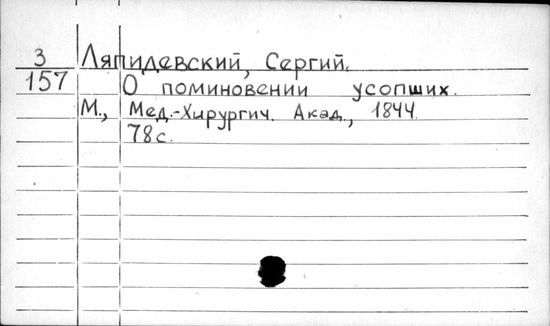 3 Ляпидевский, Сергий.
157 О поминовении усопших.
М., Мед.-Хирургич. Акад., 1844.
78 с.